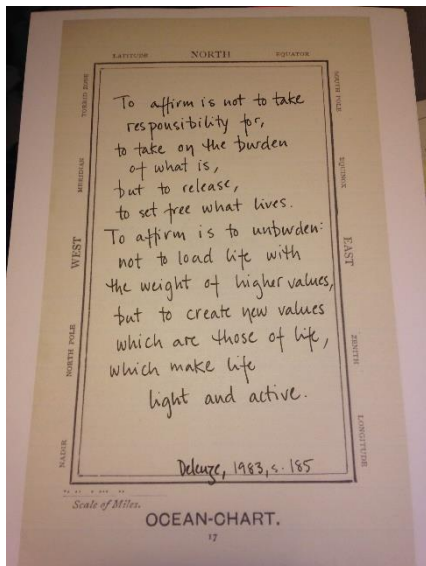 LATITUDE NORTH EQUATOR
TORRID ZONE
MERIDIAN
WEST
NORTH POLE
NADIR
SOUTH POLE
EQUINOX
EAST
ZENITH
LONGITUDE
To affirm is not to take
responsibility for,
to take on the burden
of what is,
but to release,
to set free what lives.
To affirm is to unburden:
not to load life with
the weight of higher values,
but to create new values
which are those of life,
which make life
light and active.
Deleuze, 1983, s. 185
Scale of Miles.
OCEAN-CHART.
17